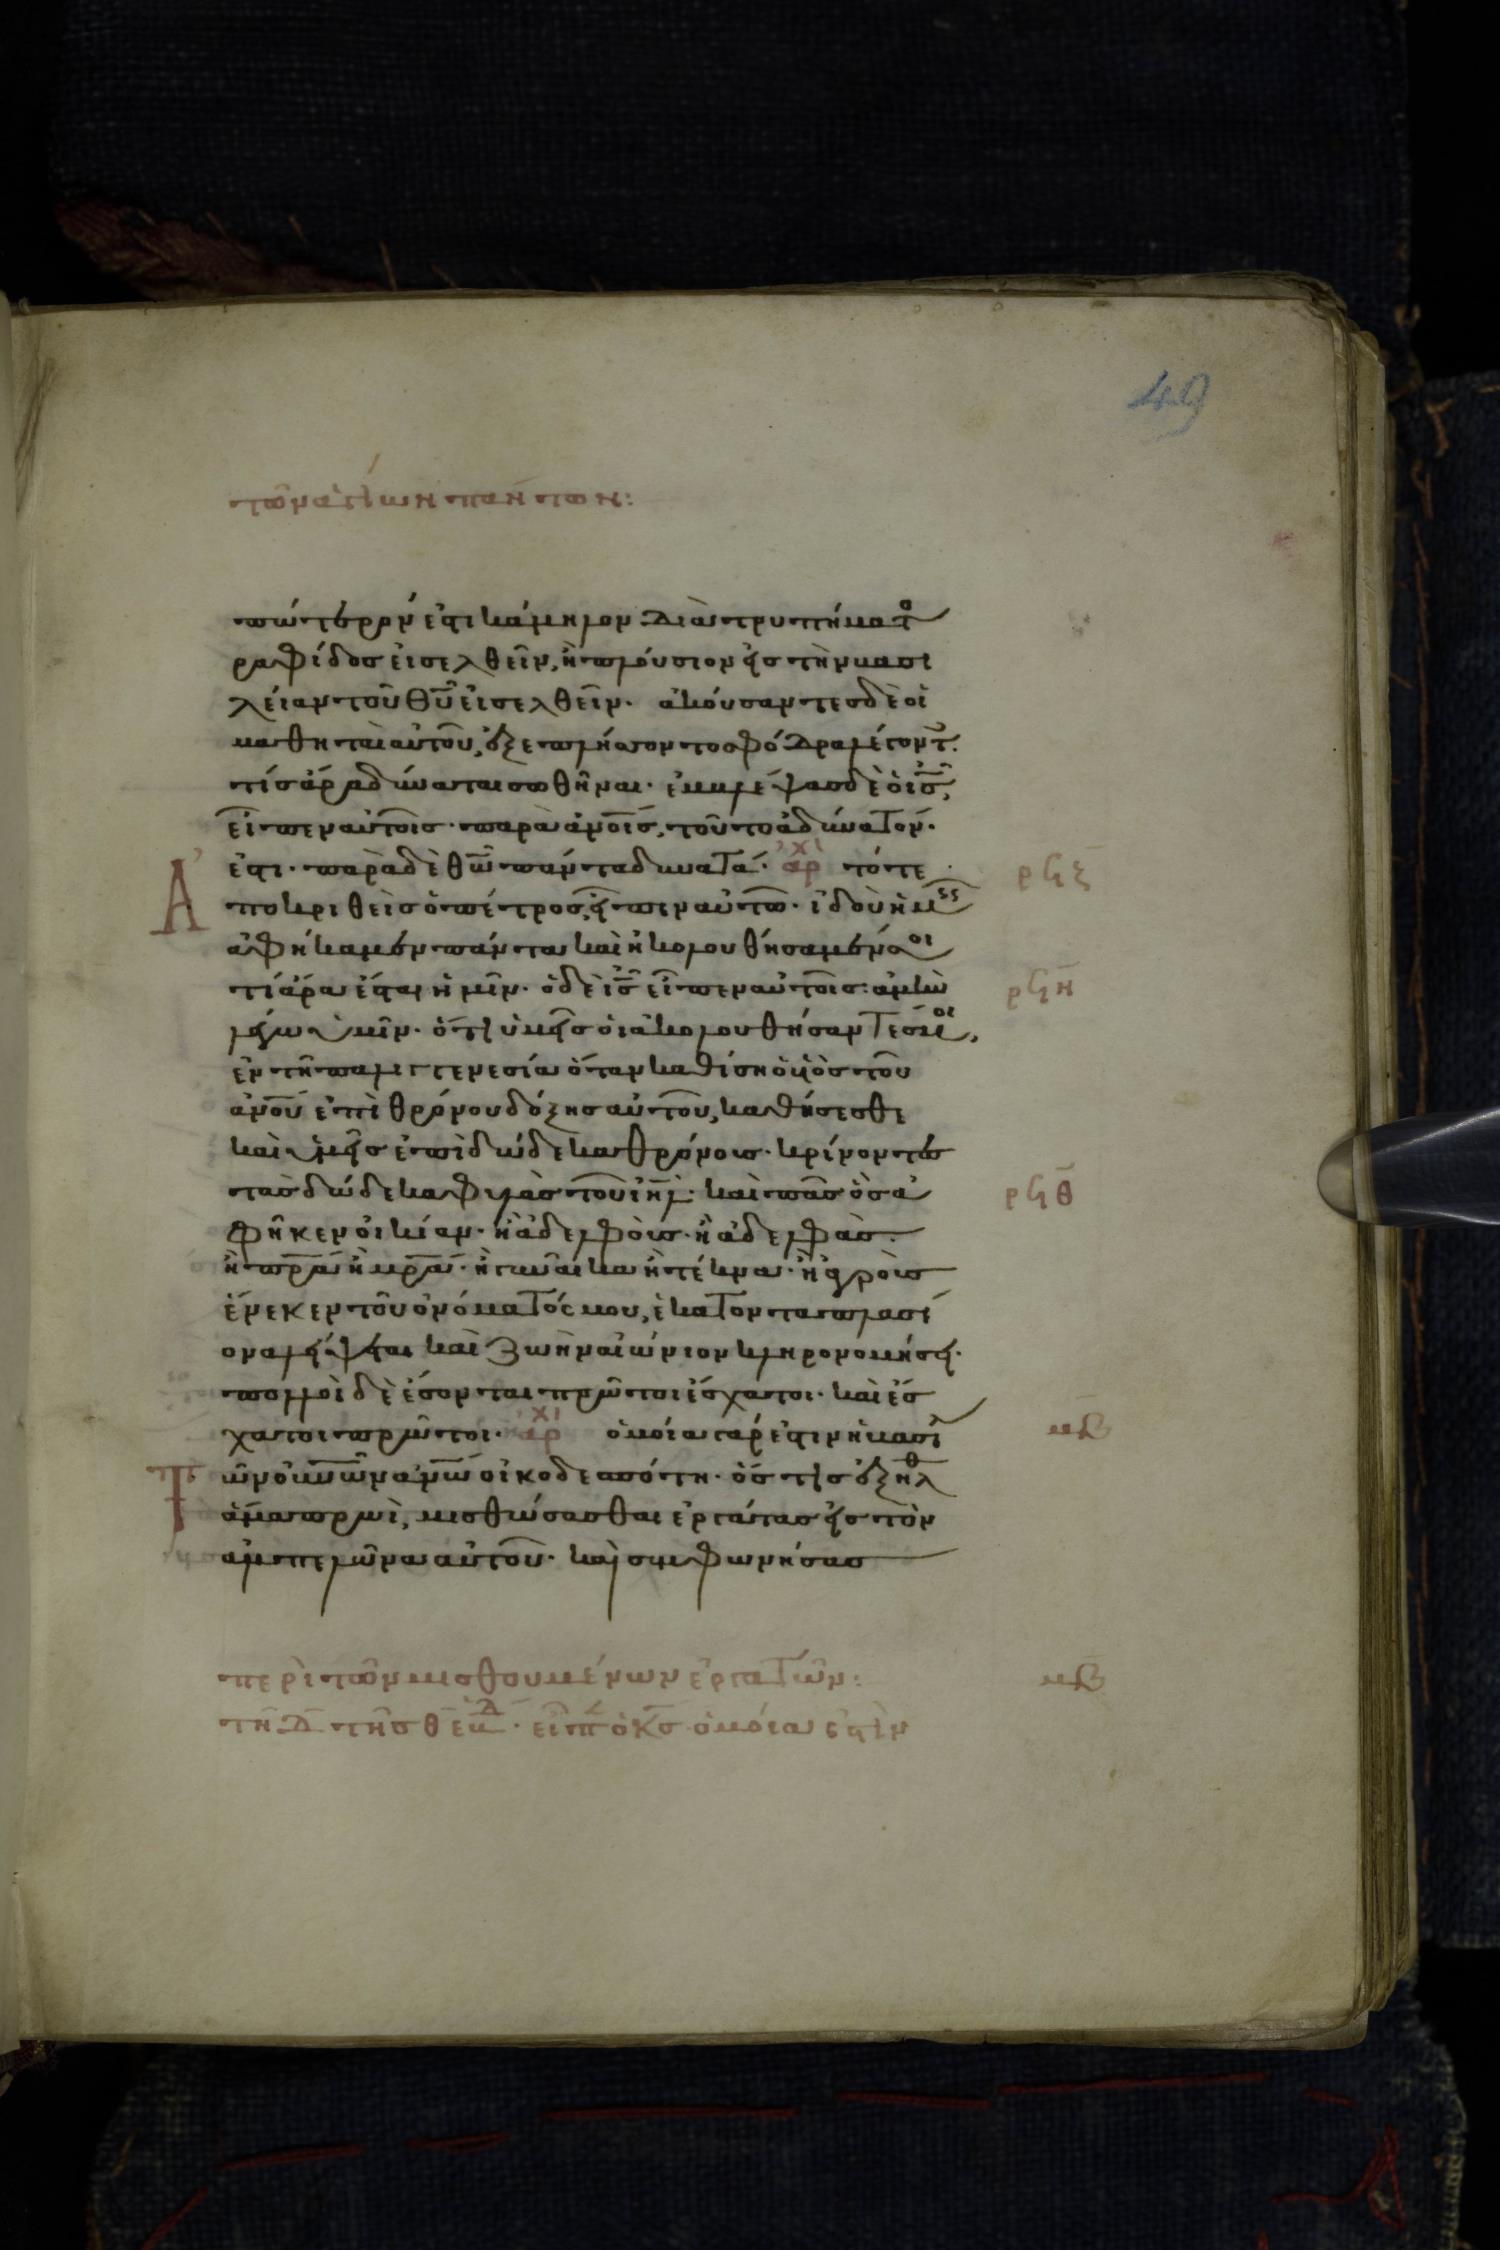 49
τῶν ἁγίων πάντων:
πώτερόν ἐστι κάμηλον διὰ τρυπήματο
ραφίδος εἰσελθεῖν, ἢ πλούσιον εἰς τὴν βασι
λείαν τοῦ θῡ εἰσελθεῖν· ἀκούσαντες δὲ οἱ
μαθηταὶ αὐτοῦ, ἐξεπλήσσοντο σφόδρα λέγοντ
τίς ἄρα δύναται σωθῆναι· ἐμβλέψας δὲ ὁ ις̄,
εἶπεν αὐτοῖς· παρὰ ἀνοις, τοῦτο ἀδύνατόν·
ἐστι· παρὰ δὲ θω̄ πάντα δυνατά· ἀρχ τότε ρϟζ
Ἀ ποκριθεὶς ὁ πέτρος, εἶπεν αὐτῶ· ἰδοὺ ἡμεῖς
ἀφήκαμεν πάντα καὶ ἠκολουθήσαμέν σοι
τί ἄρα ἔσται ἡμῖν· ὁ δὲ ις̄ εἶπεν αὐτοῖς· ἀμὴν ρϟη
λέγω ὑμῖν· ὅτι ὑμεῖς οἱ ἀκολουθήσαντές μοι,
ἐν τῆ παλιγγενεσία ὅταν καθίση ὁ υἱὸς τοῦ
ἀνου ἐπὶ θρόνου δόξης αὐτοῦ, καθήσεσθε
καὶ ὑμεῖς ἐπὶ δώδεκα θρόνους· κρίνοντες
τὰς δώδεκα φυλὰς τοῦ ιηλ· καὶ πᾶς ὃς ἀ ρϟθ
φῆκεν οἰκίαν· ἢ ἀδελφοὺς· ἢ ἀδελφὰς·
ἢ πρα ἢ μρα· ἢ γυναῖκα ἢ τέκνα· ἢ ἀγροὺς
ἕνεκεν τοῦ ὀνόματός μου, ἑκατονταπλασί
ονα λήψεται καὶ ζωὴν αἰώνιον κληρονομήσει·
πολλοὶ δὲ ἔσονται πρῶτοι ἔσχατοι· καὶ ἔσ
χατοι πρῶτοι· ἀρχ ὁμοία γάρ ἐστιν ἡ βασι μβ
Τ ῶν οὐνων ἀνω οἰκοδεσπότη· ὅς τις ἐξηλθ
ἅμα πρωῒ, μισθώσασθαι ἐργάτας εἰς τὸν
ἀμπελῶνα αὐτοῦ· καὶ συμφωνήσας
περὶ τῶν μισθουμένων ἐργατῶν: μβ
τῆ δ τῆς θ εβδ· εἶπ ὁ κς̄ ὁμοία ἐστὶν